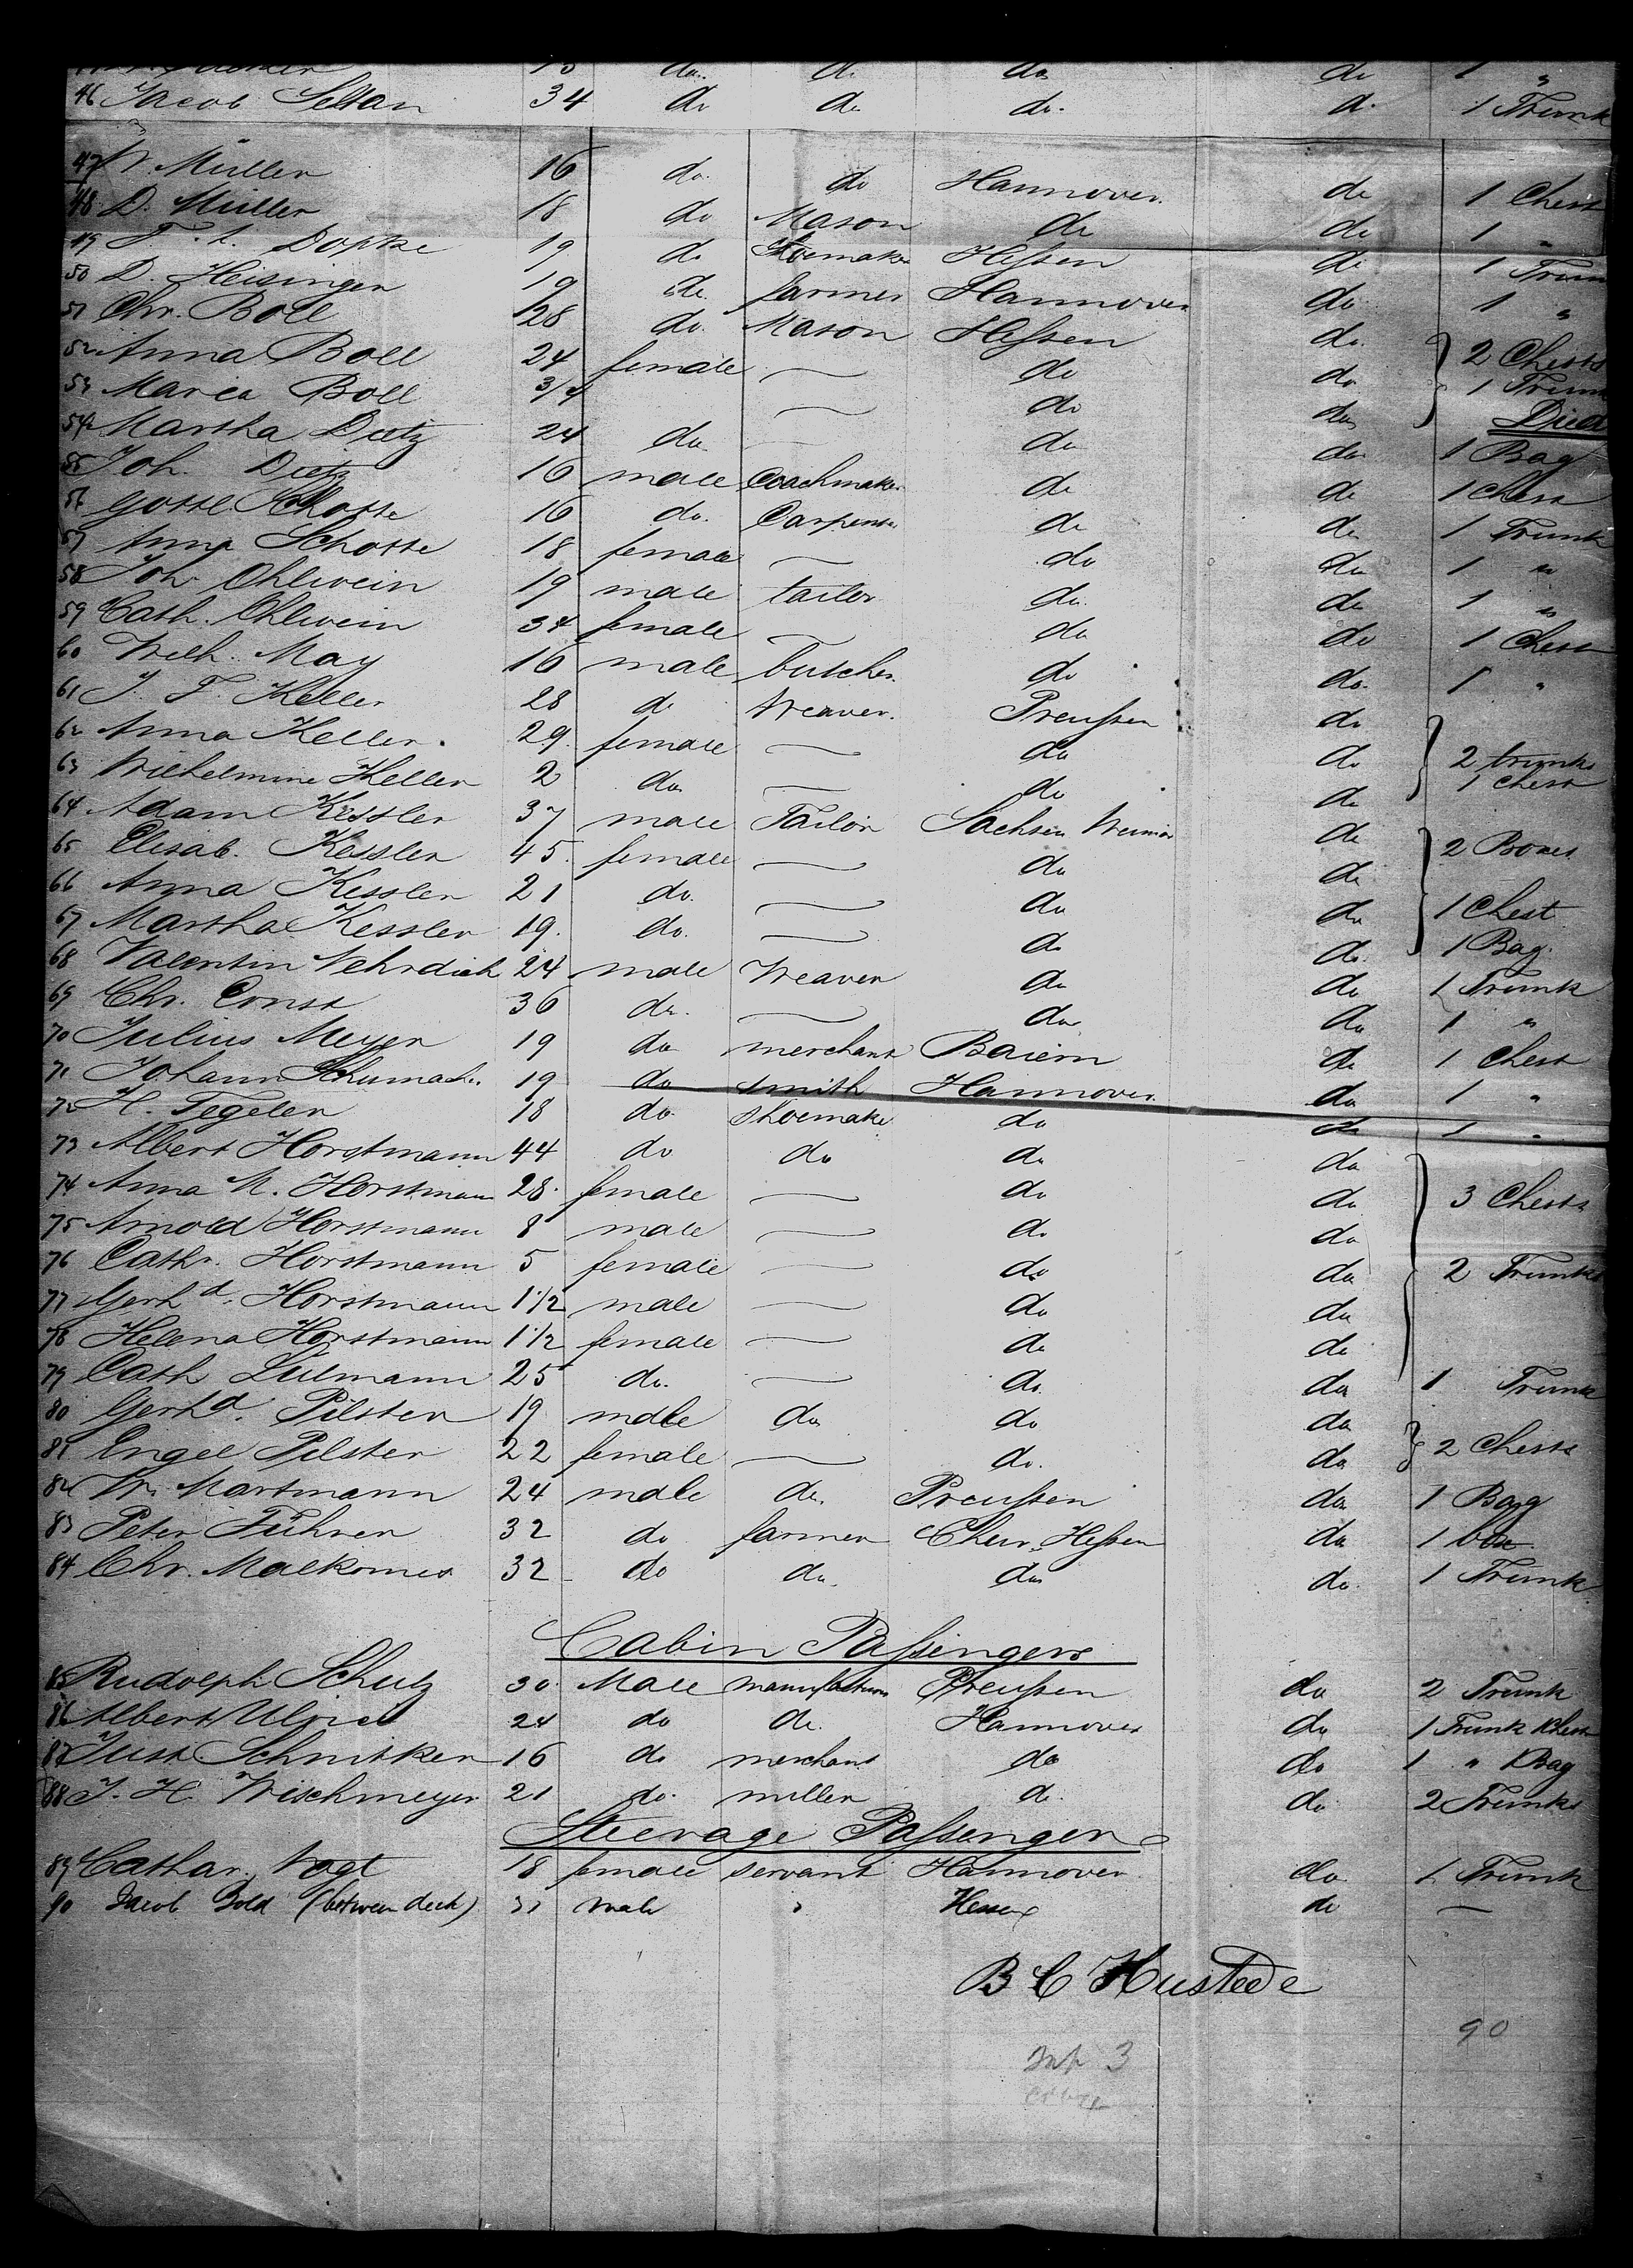 do do do 1 "
46 Jacob 34 do do do do 1 Trunk
47 W. Müller 16 do do Hannover do 1 Chest
48 D. Müller 18 do Mason do do 1 "
49 Dopke 19 do Shoemaker Heſsen do 1 Trunk
50 D. Heisinger 19 do farmer Hannover do 1 "
51 Chr. Boll 28 do Mason Heſsen do
52 Anna Boll 24 female — do do 2 Chests
53 Maria Boll 3/4 — do do 1 Trunk Died
54 Martha Dietz 24 do — do do 1 Bag
55 Joh. Dietz 16 male Coachmaker do do 1 Chest
56 Gottl Schotte 16 do Carpenter do do 1 Trunk
57 Anna Schotte 18 female — do do 1 "
58 Joh. Ohlwein 19 male tailor do do 1 "
59 Cath. Ohlwein 34 female — do do 1 Chest
60 Wilh. May 16 male butcher do do 1 "
61 J. F. Keller 28 do Weaver Preuſsen do
62 Anna Keller 29 female — do do 2 trunks
63 Wilhelmine Keller 2 do — do do 1 Chest
64 Adam Kessler 37 male Tailor Sachsen Weimar do
65 Elisab. Kessler 45 female — do do 2 Boxes
66 Anna Kessler 21 do — do do 1 Chest
67 Martha Kessler 19 do — do do 1 Bag
68 Valentin Nehrdich 24 male Weaver do do 1 Trunk
69 Chr. Ernst 36 do — do do 1 "
70 Julius Meyer 19 do merchant Baiern do 1 Chest
71 Johann Schumacher 19 do smith Hannover do 1 "
72 H. Tegeler 18 do Shoemaker do do 1 "
73 Albert Horstmann 44 do do do do
74 Anna M. Horstmann 28 female — do do 3 Chests
75 Arnold Horstmann 8 male — do do
76 Cathr. Horstmann 5 female — do do 2 Trunks
77 Gerhd. Horstmann 1 1/2 male — do do
78 Helena Horstmann 1 1/2 female — do do
79 Cath Lulmann 25 do — do do 1 Trunk
80 Gerhd. Pilster 19 male do do do
81 Engel Pilster 22 female — do do 2 Chests
82 W. Martmann 24 male do Preuſsen do 1 Bag
83 Peter Führer 32 do farmer Chur Heſsen do 1 box
84 Chr. Malkomes 32 do do do do 1 Trunk
Cabin Paſsingers
85 Rudolph Schulz 30 Male manufacturer Preuſsen do 2 Trunk
86 Albert Ulrici 24 do do Hannover do 1 Trunk 1 Chest
87 Just Schnitker 16 do merchant do do 1 " 1 Bag
88 J. H. Wischmeyer 21 do miller do do 2 Trunks
Steerage Paſsengers
89 Cathar. Vogt 18 female servant Hannover do 1 Trunk
90 Jacob Bold (between deck) 31 male " Hessen do —
B C Hustede
90
Inf 3